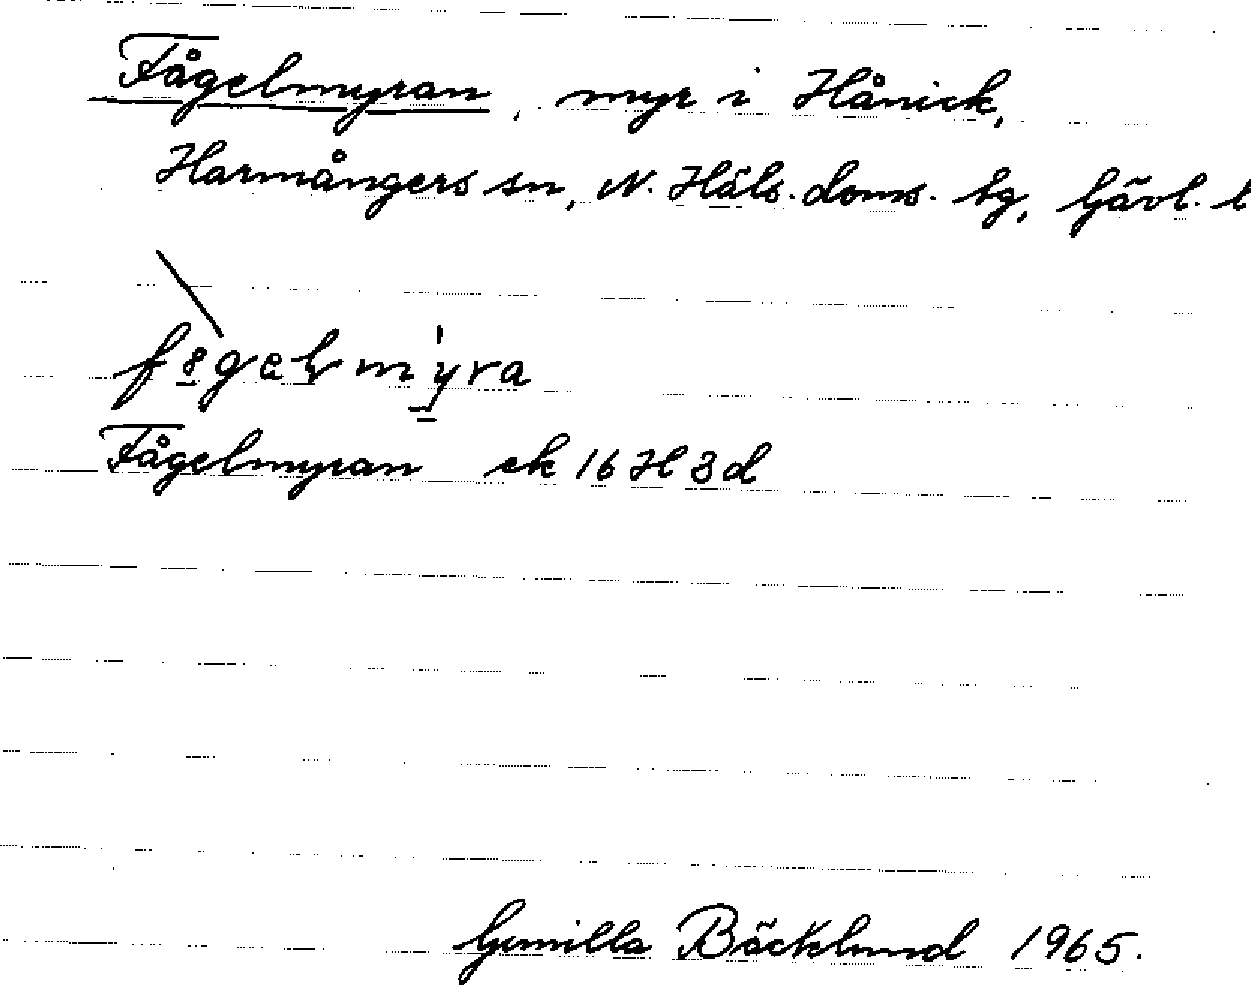 Fågelmyran, myr i Hånick,
Harmångers sn, N. Häls. doms. tg, Gävl. l
Fågelmyran ek 16 H 3d
Gunilla Bäcklund 1965.